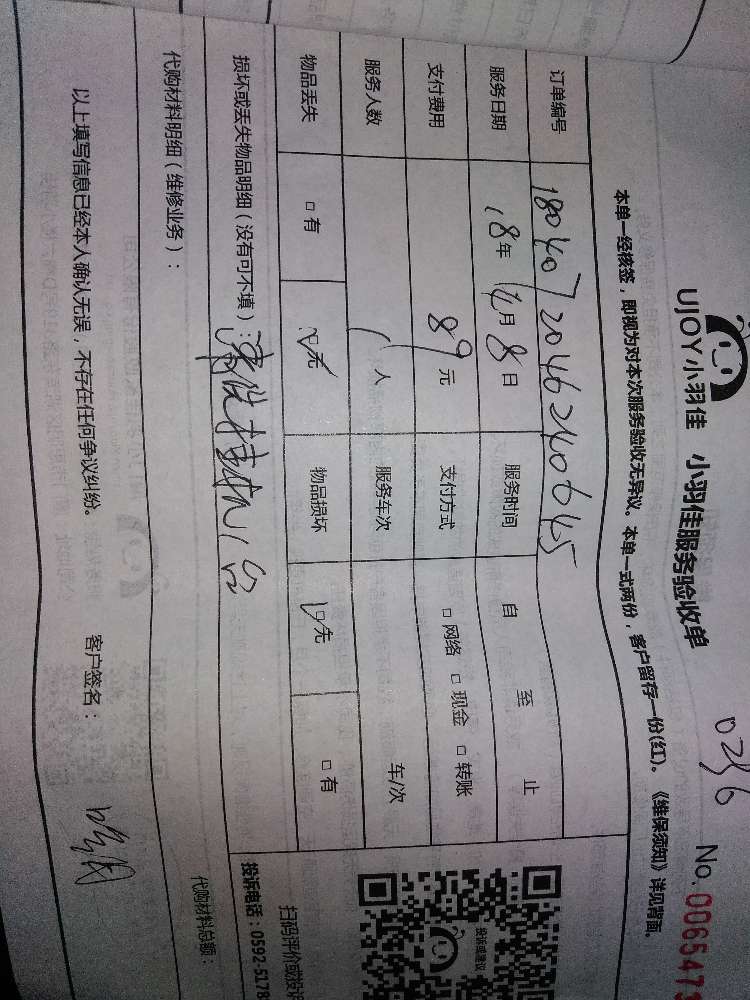 0256
UJOY小羽佳 小羽佳服务验收单 No. 0065475
本单一经核签，即视为对本次服务验收无异议。本单一式两份，客户留存一份(红)。《维保须知》详见背面。
订单编号 1804072046240645
服务日期 18年 4月 8日 服务时间 自 至 止
支付费用 89元 支付方式 □ 网络 □ 现金 □ 转账
服务人数 1人 服务车次 车/次
物品丢失 □ 有 □ 无 物品损坏 □ 无 □ 有
损坏或丢失物品明细（没有可不填）：清洗挂机1台
代购材料明细（维修业务）： 代购材料总额：
以上填写信息已经本人确认无误，不存在任何争议纠纷。 客户签名：
投诉或建议
扫码评价或投诉
投诉电话：0592-5178